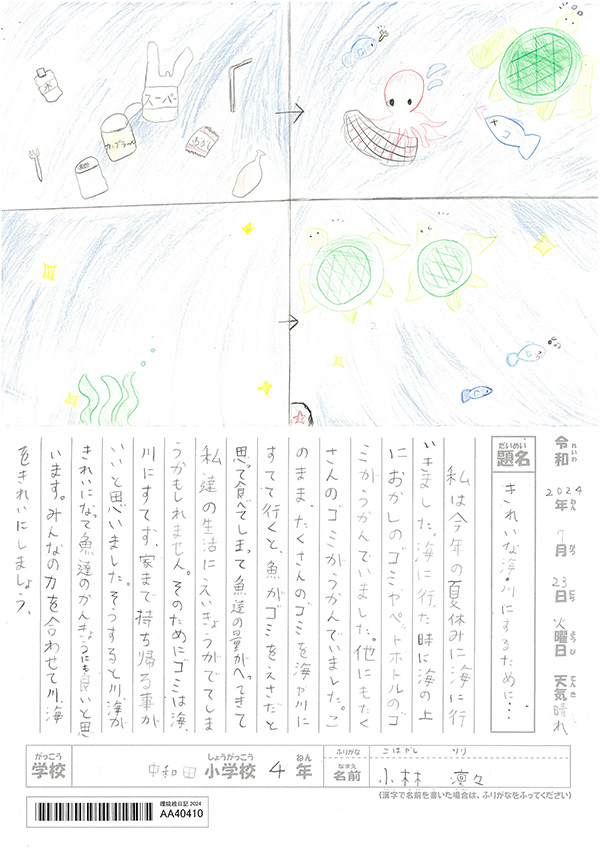 水
スーパー
カップラーメン
おかし
令和 2024年 7月 23日 火曜日 天気 晴れ
れいわ ねん がつ にち ようび てんき
だいめい
題名
きれいな海・川にするために…
私は今年の夏休みに海に行
いきました。海に行った時に海の上
におかしのゴミやペットボトルのゴ
ミがうかんでいました。他にもたく
さんのゴミがうかんでいました。こ
のまま、たくさんのゴミを海や川に
すてて行くと、魚がゴミをえさだと
思って食べてしまって魚達の量がへってきて
私達の生活にえいきょうがでてしま
うかもしれません。そのためにゴミは海、
川にすてず、家まで持ち帰る事が
いいと思いました。そうすると川、海が
きれいになって魚達のかんきょうにも良いと思
います。みんなの力を合わせて川、海
をきれいにしましょう。
がっこう しょうがっこう ねん
学校 中和田 小学校 4年
ふりがな こばやし りり
なまえ
名前 小林 凛々
(漢字で名前を書いた場合は、ふりがなをふってください)
環境絵日記 2024
AA40410